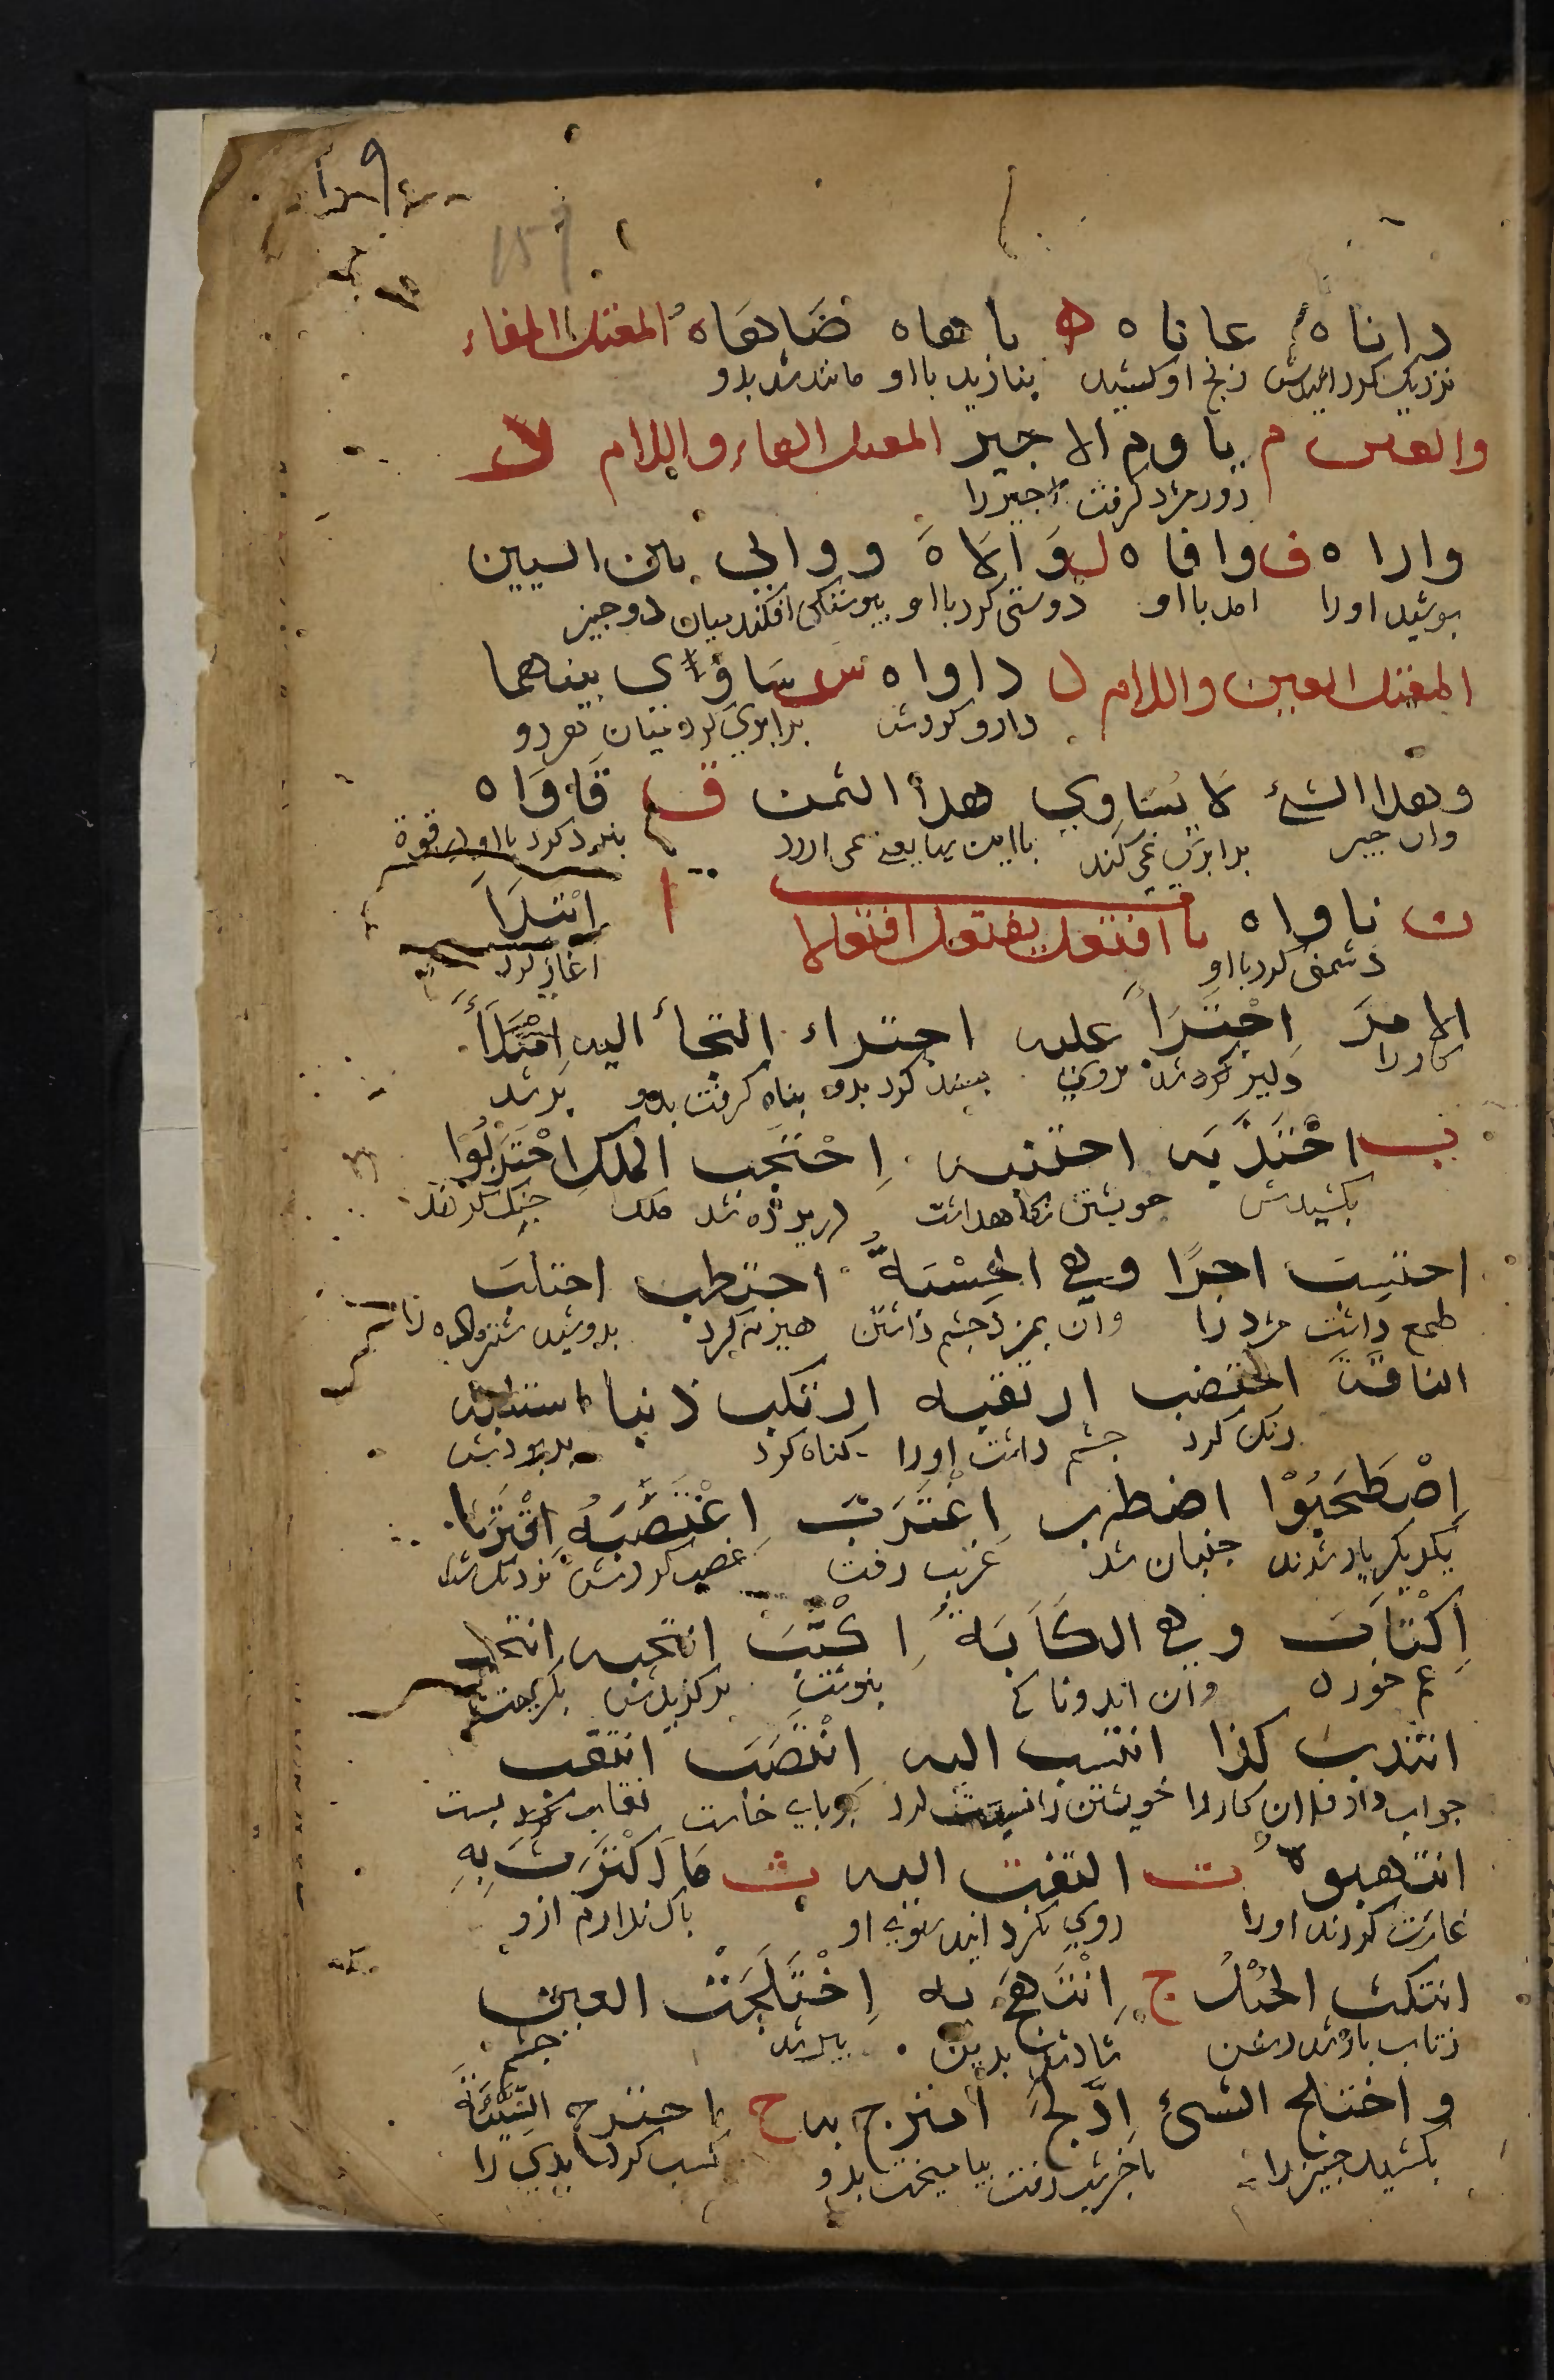 159
داناه عاناه ه باهاه ضَاهَاهُ المعتل الفاء
نزدیک کرد رنج او کشید بنازید با او مانند شد بدو
والعين م ياوم الاجير المعتل الفاء واللام
روز مزد گرفت اجیر را
واراه ف وافاه ل وَالَاهُ ووالى بين الشيين
بوشید اورا امد با او دوستی کرد با او افکند میان دو جیز
المعتل العين واللام ل داواه س سَاوَى بينهما
دارو کردش برابری کرد میان هر دو
وهذا الشئ لا يُسَاوِي هذا الثمن ق قَاوَاه
وان جیز برابری نمی کند با این بها نبرد کرد با او در قوة
ن ناواه با افتعل يفتعل افتعالا ا اِبْتَدَأَ
دشمنی کرد با او اغاز کرد
الامرَ اِجْتَرَأَ عليه اجتراء التجأ اليه اِمْتَلَأَ
کار را دلیر شد بروی بسنده کرد بدو بناه کرفت بدو بر شد
ب اجْتَذَبَه اجتنبه اِحْتَجَب الملك اِحْتَرَبُوا
بکشیدش خویشتن نگاه داشت در برده شد ملک جنک کردند
احتسب اجرًا وهي الحِسْبَةُ احتطب احتلب
طمع داشت مزد را وان مزد جشم داشتن هیزم کرد بدوشید شتر ماده را
الناقةَ اختضب ارتقبه ارتكب ذنبا استلبه
رنک کرد جشم داشت اورا کناه کرد بربودش
اِصْطَحَبُوْا اضطرب اِغْتَرَبَ اِغْتَصَبَهُ اِقْتَرَبَ
یکدیکر یار شدند جنبان شد غریب رفت غصب کردش نزدیک شد
اِكْتَأَبَ وهي الكَآبَةُ اِكْتَتَبَ انتخبه انتحب
غم خورد وان اندوناکی بنوشت بر کزیدش بکریست
انتدب كذا انتسب اليه اِنْتَصَبَ انتقب
جواب داد فلان کار را خویشتن را نسبت کرد بر بای خاست نقاب بست
انتهبوهُ ت التفت اليه ث مَا اكْتَرَثَ بِهِ
غارت کردند اورا روی کرد اند سوی او باک ندارم ازو
انتكث الحَبْلُ ج اِبْتَهَجَ به اِخْتَلَجَتْ العين
ز تاب باز شد رسن شاد شد بدین ببرید جشم
واختلج الشئ اِدَّلَجَ امتزج به ح اجترح السَّيِّئَةَ
بکشید جیز را باخر شب رفت بیامیخت بدو کسب کرد بدی را